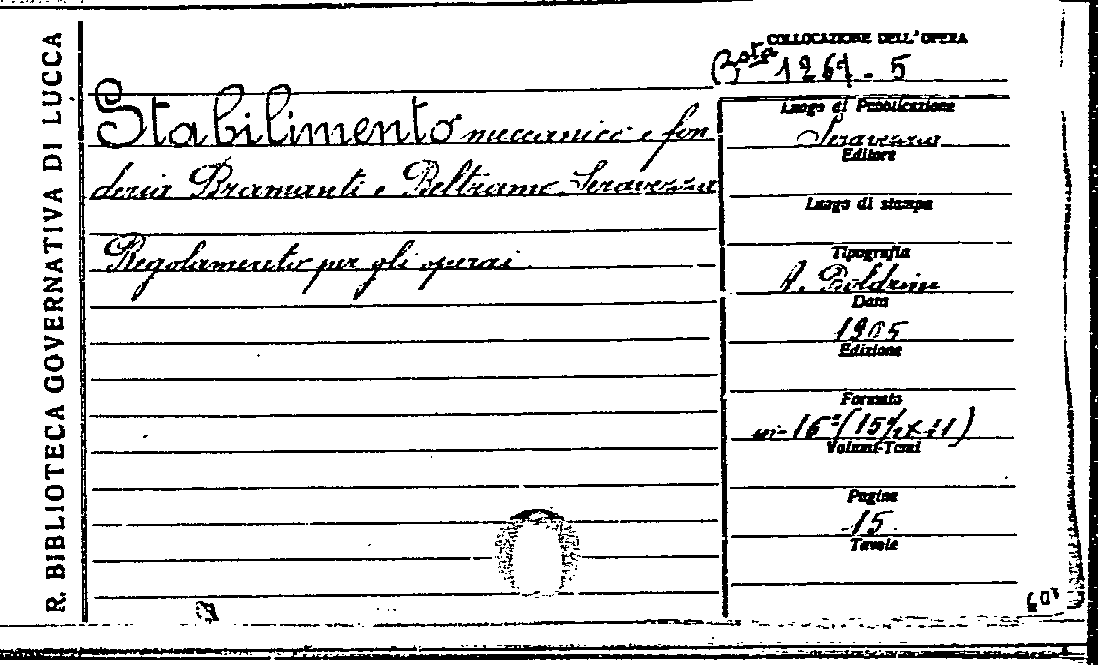 R. BIBLIOTECA GOVERNATIVA DI LUCCA
COLLOCAZIONE DELL'OPERA
Bsta 1261 - 5
Stabilimento meccanico e fon
deria Bramanti e Beltrame Seravezza
Regolamento per gli operai
Luogo di Pubblicazione
Seravezza
Editore
Luogo di stampa
Tipografia
A. Boldrini
Data
1905
Edizione
Formato
in-16° (15½×11)
Volumi-Tomi
Pagine
15
Tavole